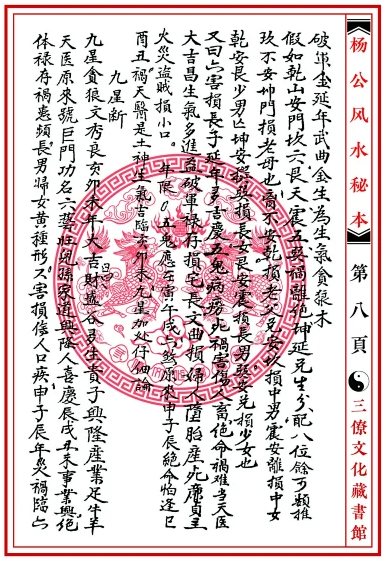 破军金延年武曲金生為生氣貪狼木
假如乾山安門坎六艮天震五巽禍離絶坤延兌生分配八位餘可類推
坎不安坤門損老母也离不安乾損老父兌安坎損中男震安離損中女
乾安長少男亡坤安巽損長女艮安震損長男巽安兌損少女也
又曰六害損長子延年多吉慶五鬼病痨死禍害傷六畜絶命禍难当天医
大吉昌生氣多進益破軍禄存損宅長文曲損婦人墮胎産死廉貞主
火災盗賊損小口
年限 五鬼應在寅午戌年煞原來申子辰絶命怕逢巳
酉丑禍天醫是土神生氣吉臨亥卯未九星加処仔細論
九星断
九星貪狼文秀良亥卯未年大吉昌財盛谷多生貴子興隆産業足牛羊
天医原來號巨門功名六藝旺兒孫家道興隆人喜慶辰戌丑未事業興絶
体禄存禍患頻長男婦女黄種形六害損傷人口疾申子辰年災禍臨六
杨公风水秘本
第八頁
三僚文化藏書館